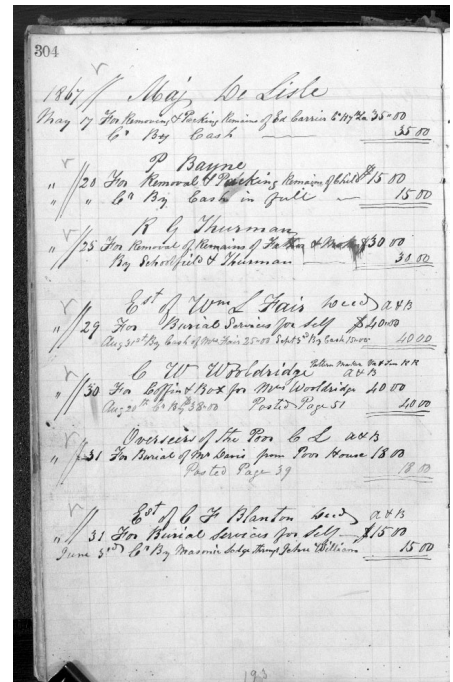 304
1867 Maj De Lisle
May 17 For Removing & Packing Remains of Ed Carrin to La 35.00
Cr By Cash 35 00
P Bayne
" 20 For Removal & Packing Remains of Child $15 00
" " Cr By Cash in full 15 00
R G Thurman
" 25 For Removal of Remains of Father & $30 00
By Schoolfield & Thurman 30.00
Est of Wm L Fair Decd A & B
" 29 For Burial Services for Self $40.00
Aug 31st By Cash of Mrs Fair 25.00 Sept 3d By Cash 15.00 40 00
C W Wooldridge Pattern Maker Va & Tenn R R A & B
" 30 For Coffin & Box for Mrs Wooldridge 40 00
Aug 20th Cr By 38.00 Posted Page 51 40 00
Overseers of the Poor C L A & B
" 31 For Burial of Mr Davis from Poor House 18 00
Posted Page 39 18 00
Est of C F Blanton Decd A & B
" 31 For Burial Services for Self $15 00
June 3rd Cr By Masonic Lodge through John William 15 00
193